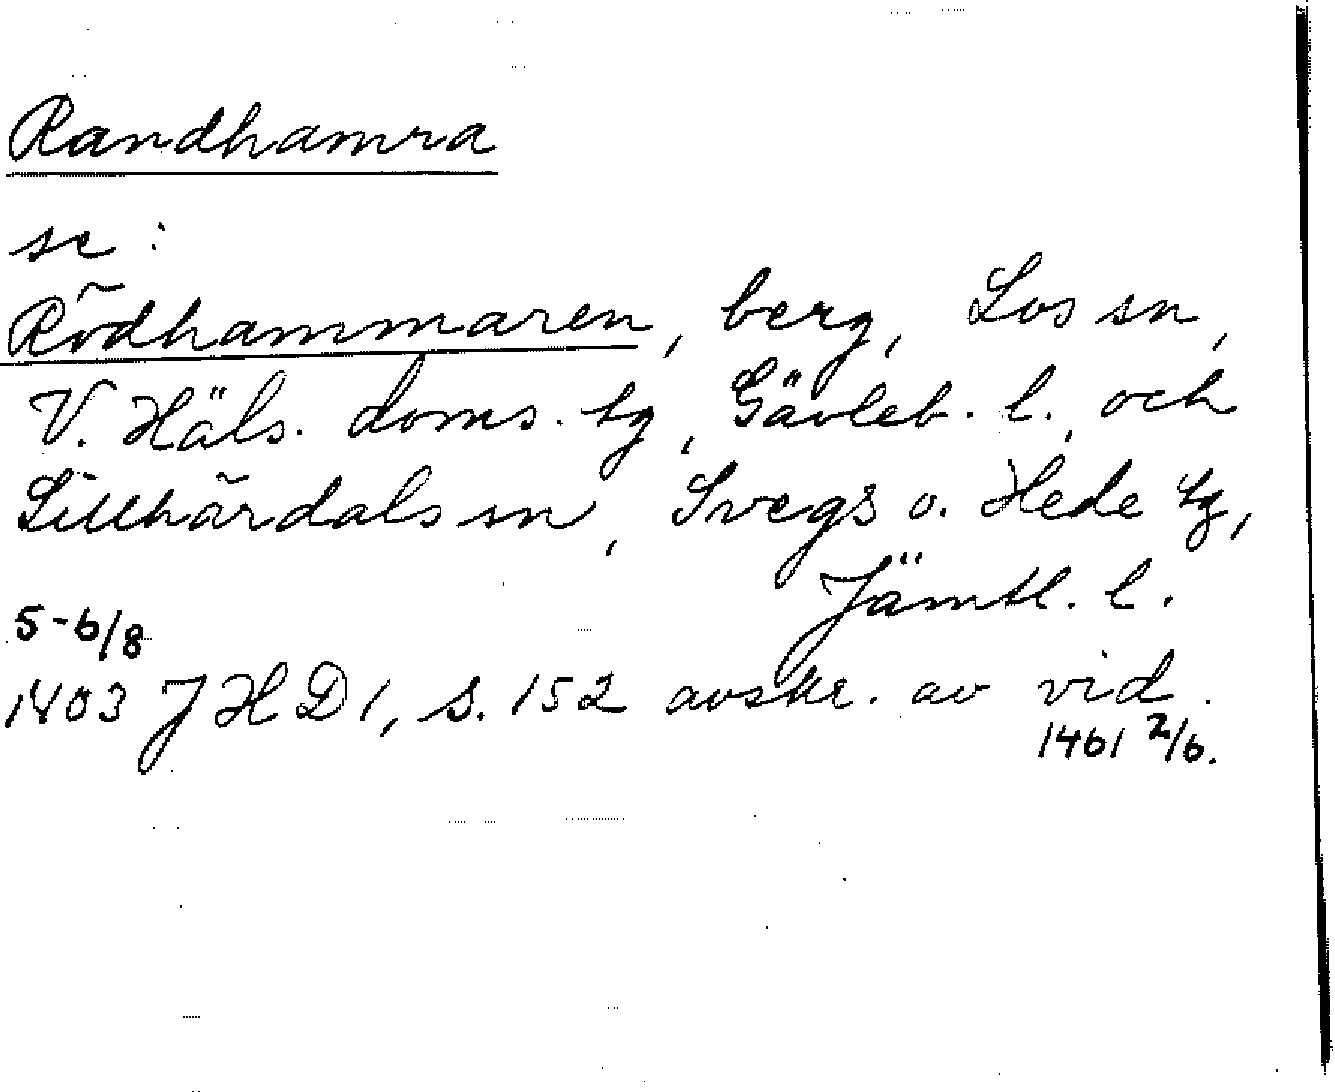 Randhamra
se:
Rödhammaren, berg, Los sn,
V. Häls. doms. tg, Gävleb. l., och
Lillhärdals sn, Svegs o. Hede tg,
Jämtl. l.
5-6/8
1403 JHD1, s. 152 avskr. av vid.
1461 2/6.